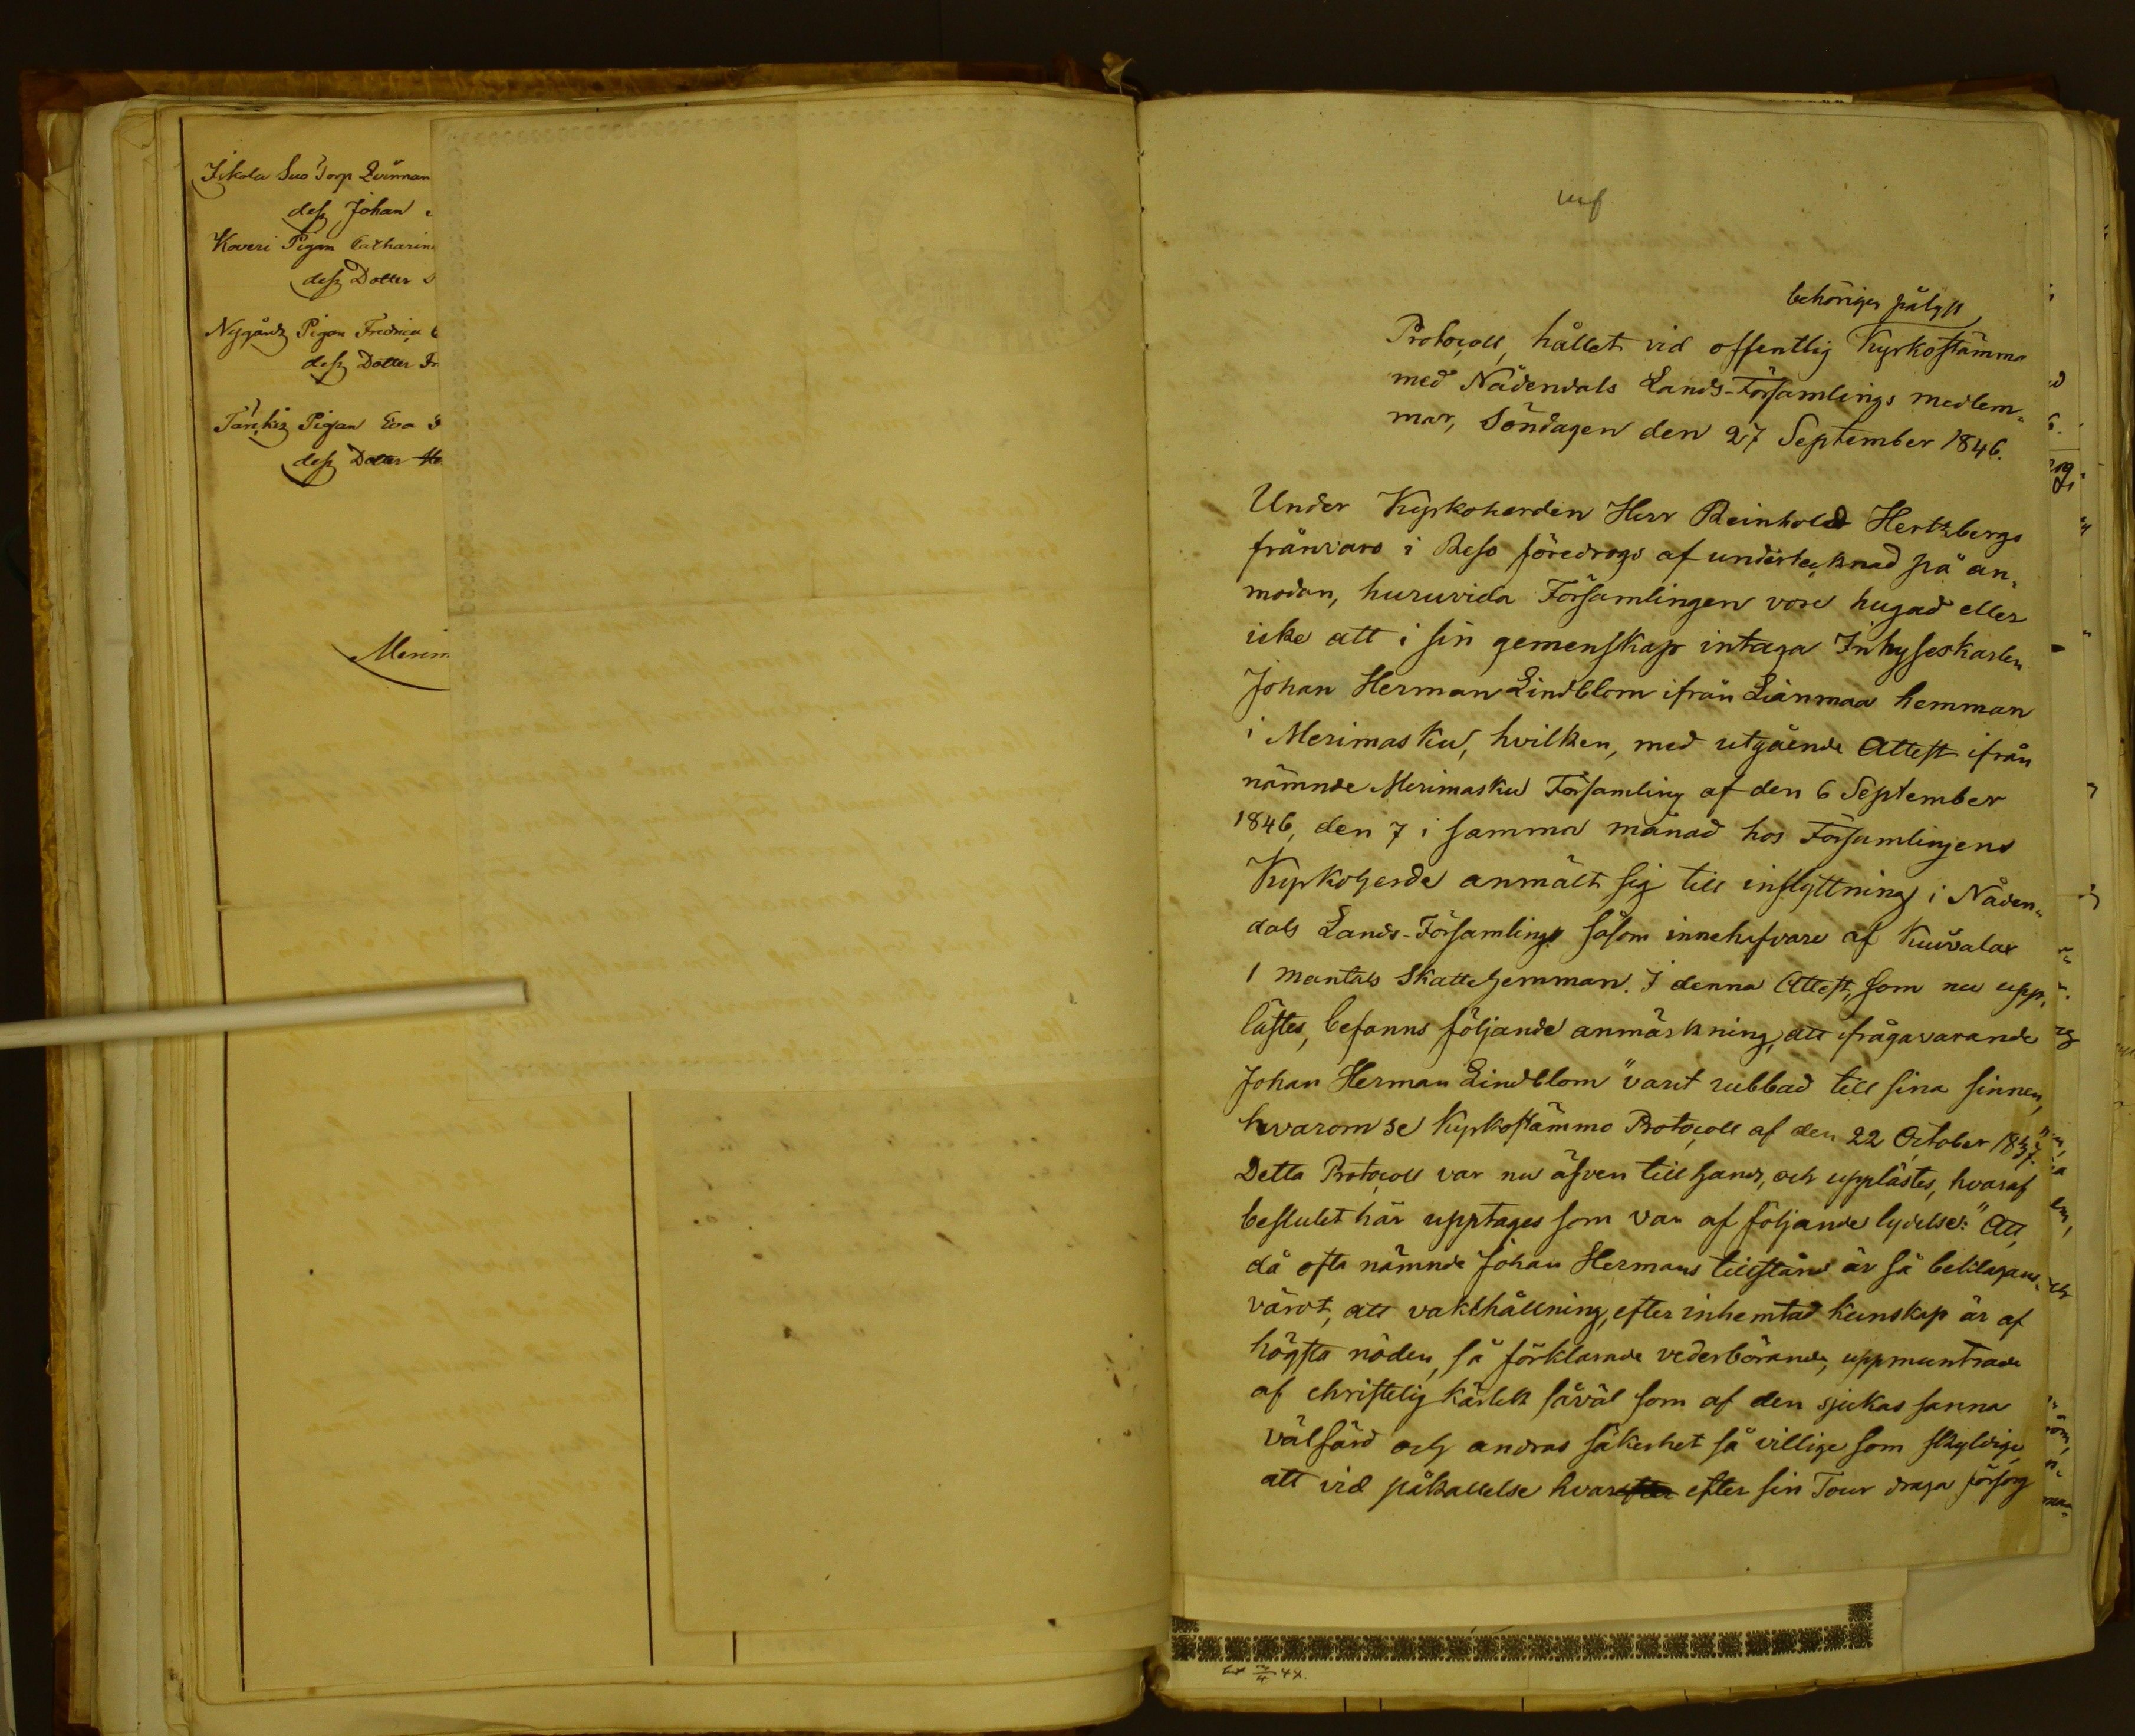 Iskola Suo Torp Qvinnan
dess Johan
Koveri Pigan Catharin
dess Dotter
Nygårds Pigan Fredrica
dess Dotter
Pigan Eva
dess Dotter
Merim
behörigen pålyst
Protocoll, hållet vid offentlig Kyrkostämma
med Nådendals Lands-Församlings medlem=
mar, Söndagen den 27 September 1846.
Under Kyrkoherden Herr Reinhold Hertzbergs
frånvaro i Reso föredrogs af undertecknad på an=
modan, huruvida Församlingen vore hugad eller
icke att i sin gemenskap intaga Inhyseskarlen
Johan Herman Lindblom ifrån Liänmaa hemman
i Merimasku, hvilken, med utgående Attest ifrån
nämnde Merimasku Församling af den 6 September
1846, den 7 i samma månad hos Församlingens
Kyrkoherde anmält sig till inflyttning i Nåden=
dals Lands-Församling såsom innehafvare af Kuuvalax
1 mantals Skattehemman. I denna Attest, som nu upp=
lästes, befanns följande anmärkning, att ifrågavarande
Johan Herman Lindblom "varit rubbad till sina sinnen,
hvarom se Kyrkostämmo Protocoll af den 22 October 1837."
Detta Protocoll var nu äfven till hands, och upplästes, hvaraf
beslutet här upptages som var af följande lydelse: "Att,
då ofta nämnde Johan Hermans tillstånd är så beklagans=
värdt, att vakthållning, efter inhemtad kunskap är af
högsta nöden, så förklarade vederbörande, uppmuntrade
af christelig kärlek såväl som af den sjukas sanna
välfärd och andras säkerhet så villige som skyldige,
att vid påkallelse hvar efter sin Tour draga försorg